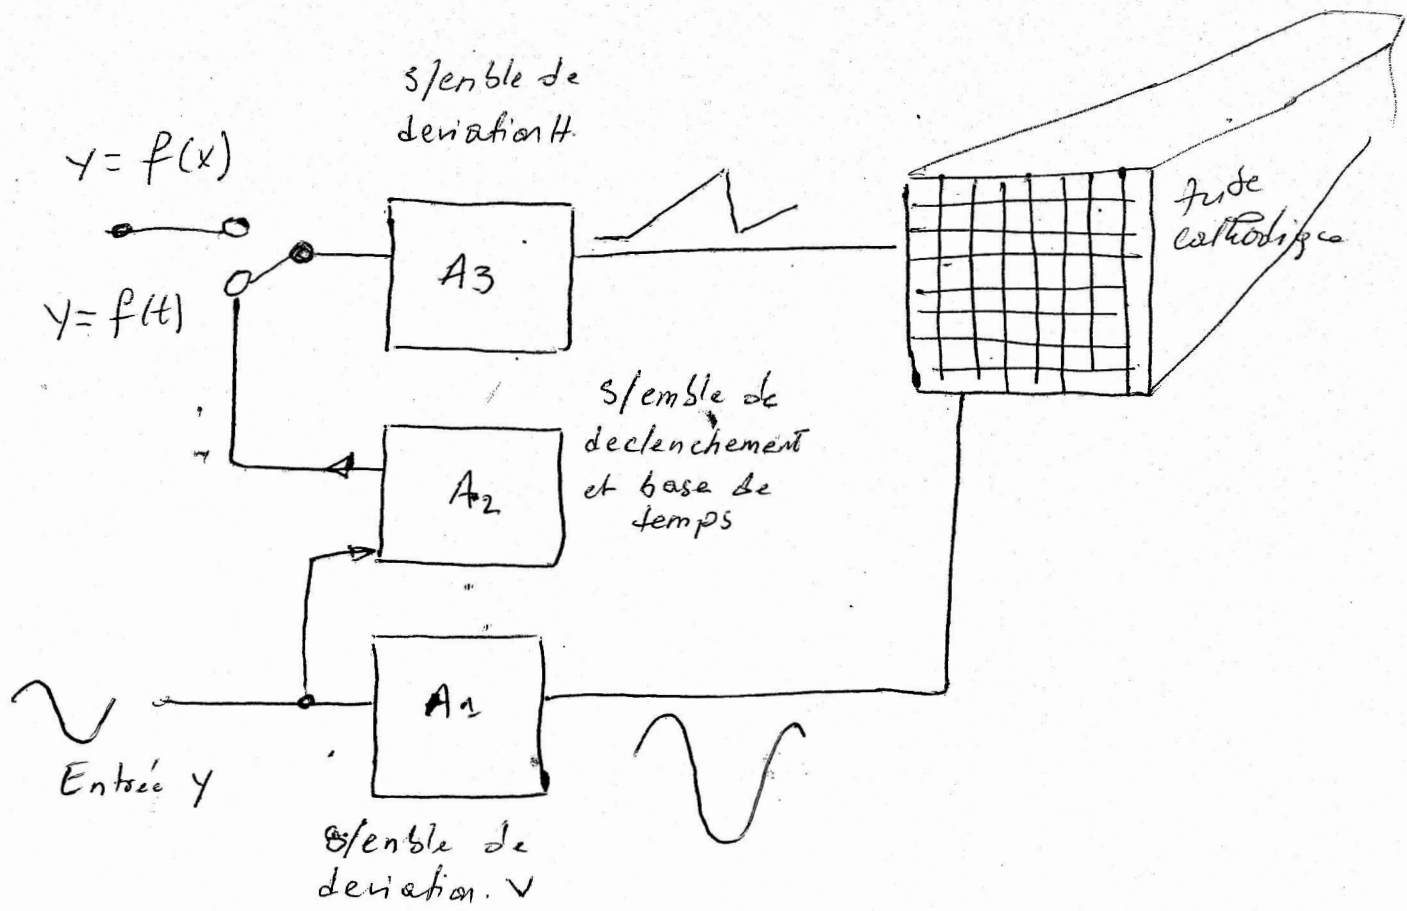 s/enble de
deviation H.
y = f(x)
A3
tube
cathodique
y = f(t)
s/emble de
declenchement
et base de
temps
A2
A1
Entrée y
s/enble de
deviation. V